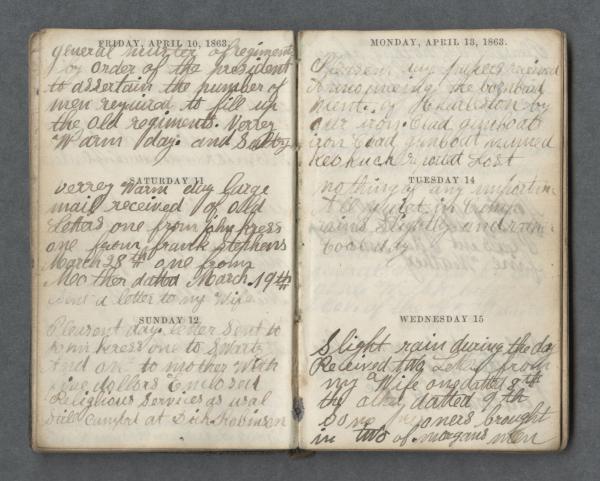 FRIDAY, APRIL 10, 1863.
general muster of regiments
by order of the president
to assertain the number of
men required to fill up
the old regiments. Verrey
Warm day. and Sultry
SATURDAY 11
verrey Warm day large
mail received of old
Letters one from john kress
one from frank Stephens
March 28th one from
Mother datted March. 19th
Sent a letter to my Wife
SUNDAY 12
Pleasent day. letter Sent to
john kress one to Swartz
And one to mother With
five dollars Enclosed
Religious Services as usal
Still Campt at Dick Robinson
MONDAY, APRIL 13, 1863.
Pleasent day papers received
Announceing the bombard
ment. of Charleston by
our iron. Clad gunboat
iron Clad gunboat named
Keokuck reported Lost
TUESDAY 14
nothing of any importan
All quiet in
rained Slightly and
Cool day
WEDNESDAY 15
Slight rain during the day
Received two Letters from
my Wife one datted 8th
the other datted 9th
Some prisoners brought
in two of. morgans men